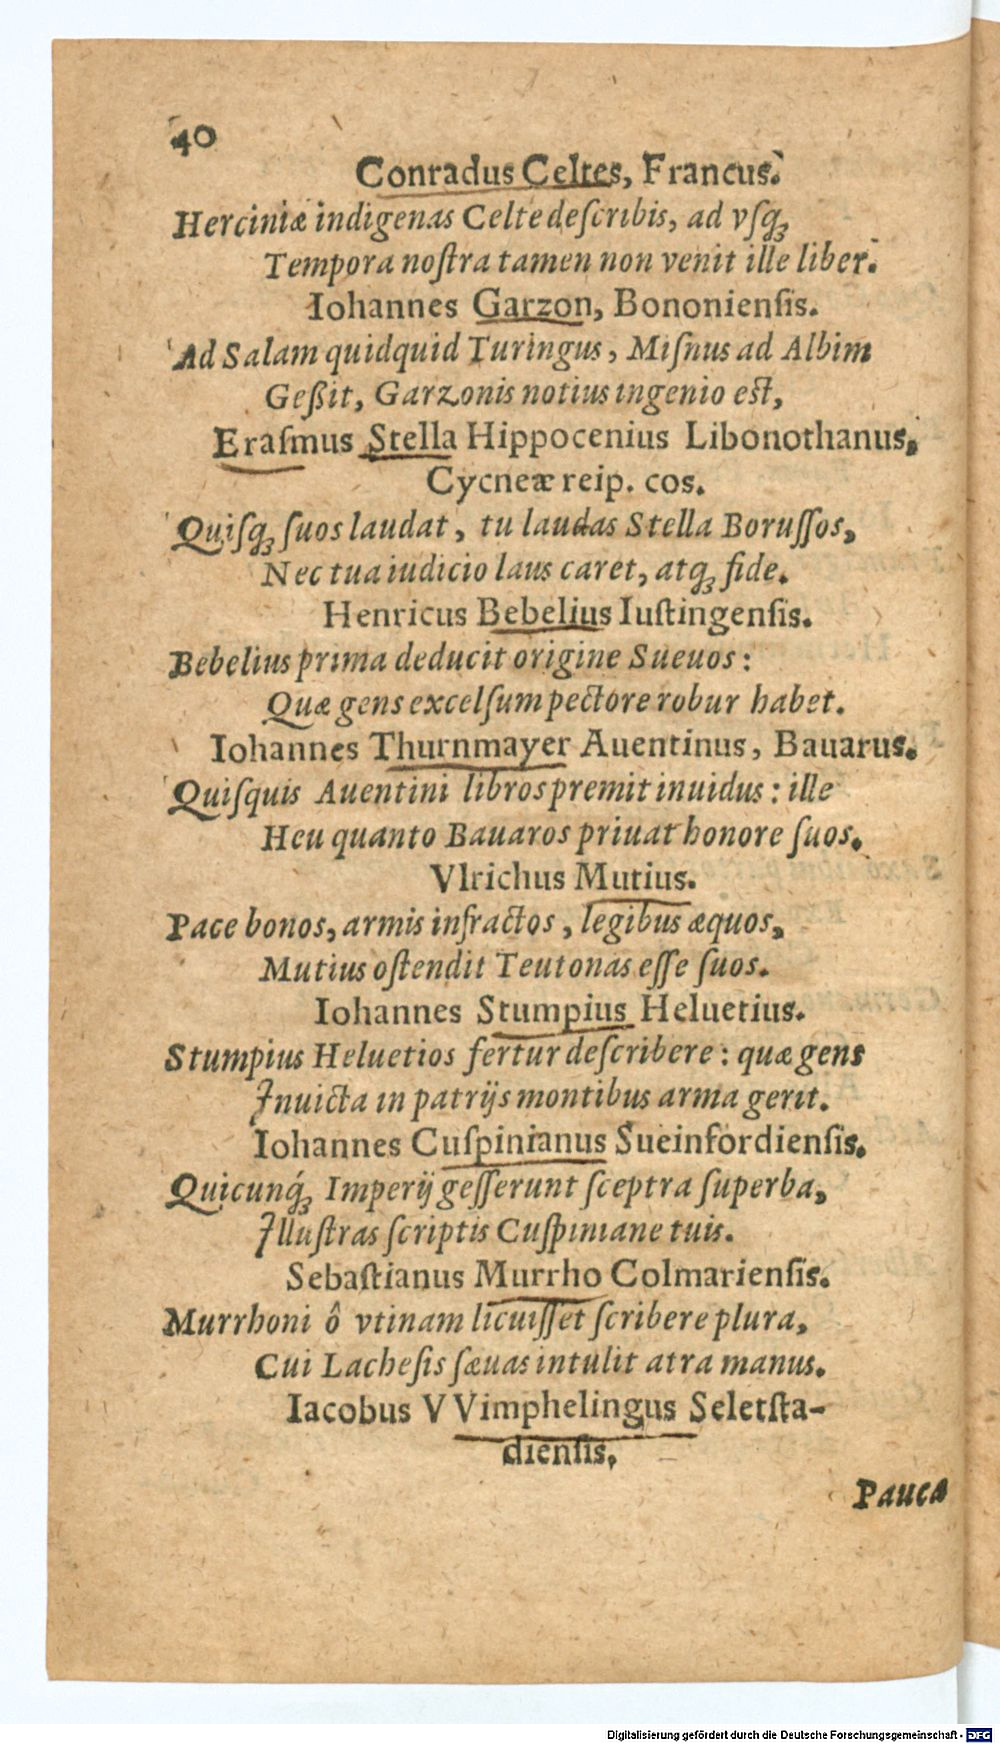 40
Conradus Celtes, Francus.
Herciniæ indigenas Celte deſcribis, ad vſqꝫ
Tempora noſtra tamen non venit ille liber.
Iohannes Garzon, Bononienſis.
Ad Salam quidquid Turingus, Miſnus ad Albim
Geßit, Garzonis notius ingenio eſt,
Eraſmus Stella Hippocenius Libonothanus,
Cycneæ reip. cos.
Quiſqꝫ ſuos laudat, tu laudas Stella Boruſſos,
Nec tua iudicio laus caret, atqꝫ fide.
Henricus Bebelius Iuſtingenſis.
Bebelius prima deducit origine Sueuos:
Quæ gens excelſum pectore robur habet.
Iohannes Thurnmayer Auentinus, Bauarus.
Quiſquis Auentini libros premit inuidus: ille
Heu quanto Bauaros priuat honore ſuos.
Vlrichus Mutius.
Pace bonos, armis infractos, legibus æquos,
Mutius oſtendit Teutonas eſſe ſuos.
Iohannes Stumpius Heluetius.
Stumpius Heluetios fertur deſcribere: quæ gens
Inuicta in patrijs montibus arma gerit.
Iohannes Cuſpinianus Sueinfordienſis.
Quicunq́ꝫ Imperij geſſerunt ſceptra ſuperba,
Illuſtras ſcriptis Cuſpiniane tuis.
Sebaſtianus Murrho Colmarienſis.
Murrhoni ô vtinam licuiſſet ſcribere plura,
Cui Lacheſis ſæuas intulit atra manus.
Iacobus VVimphelingus Seletſta-
dienſis.
Pauca
Digitalisierung gefördert durch die Deutsche Forschungsgemeinschaft - DFG